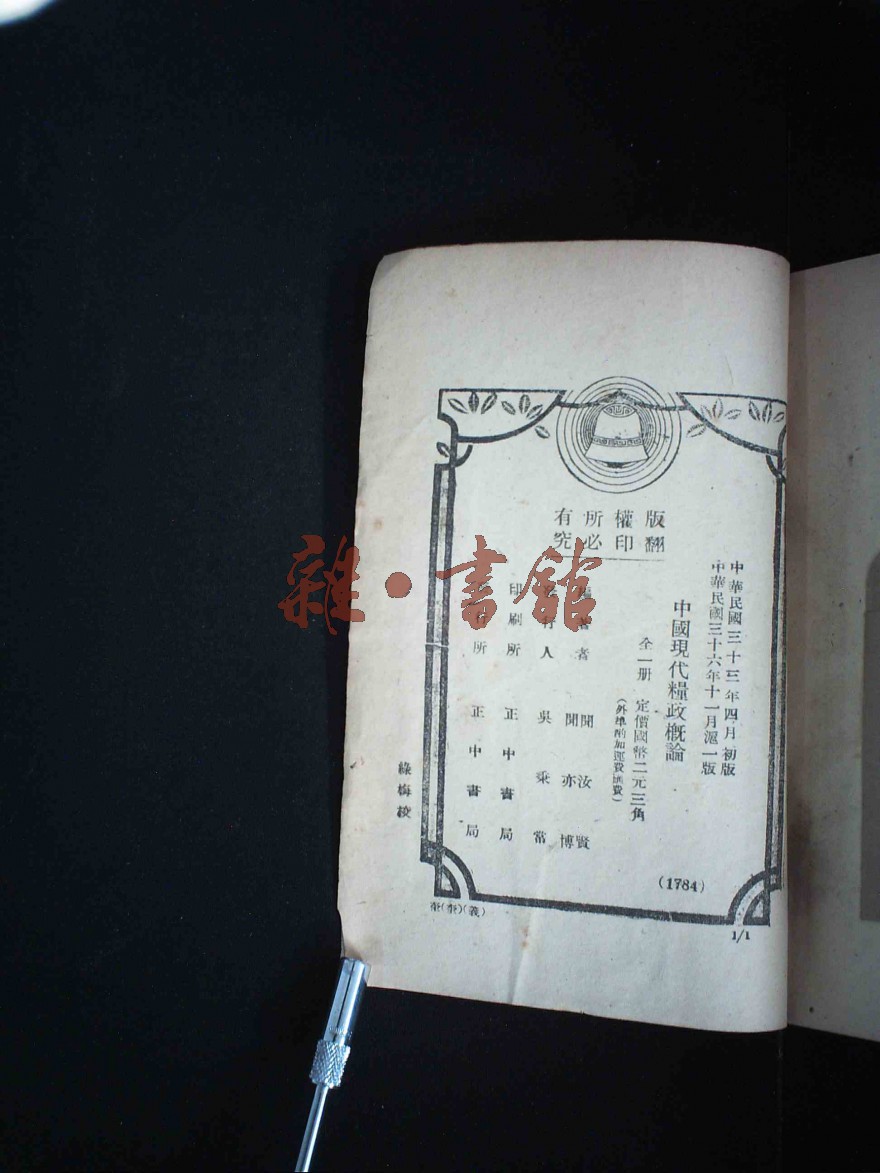 版權所有
翻印必究
中華民國三十三年四月初版
中華民國三十六年十一月滬一版
中國現代糧政概論
全一册 定價國幣二元三角
(外埠酌加運費匯費)
編著者 聞汝賢
聞亦博
發行人 吳秉常
印刷所 正中書局
發行所 正中書局
綠梅校
(1784)
1/1
雜·書館